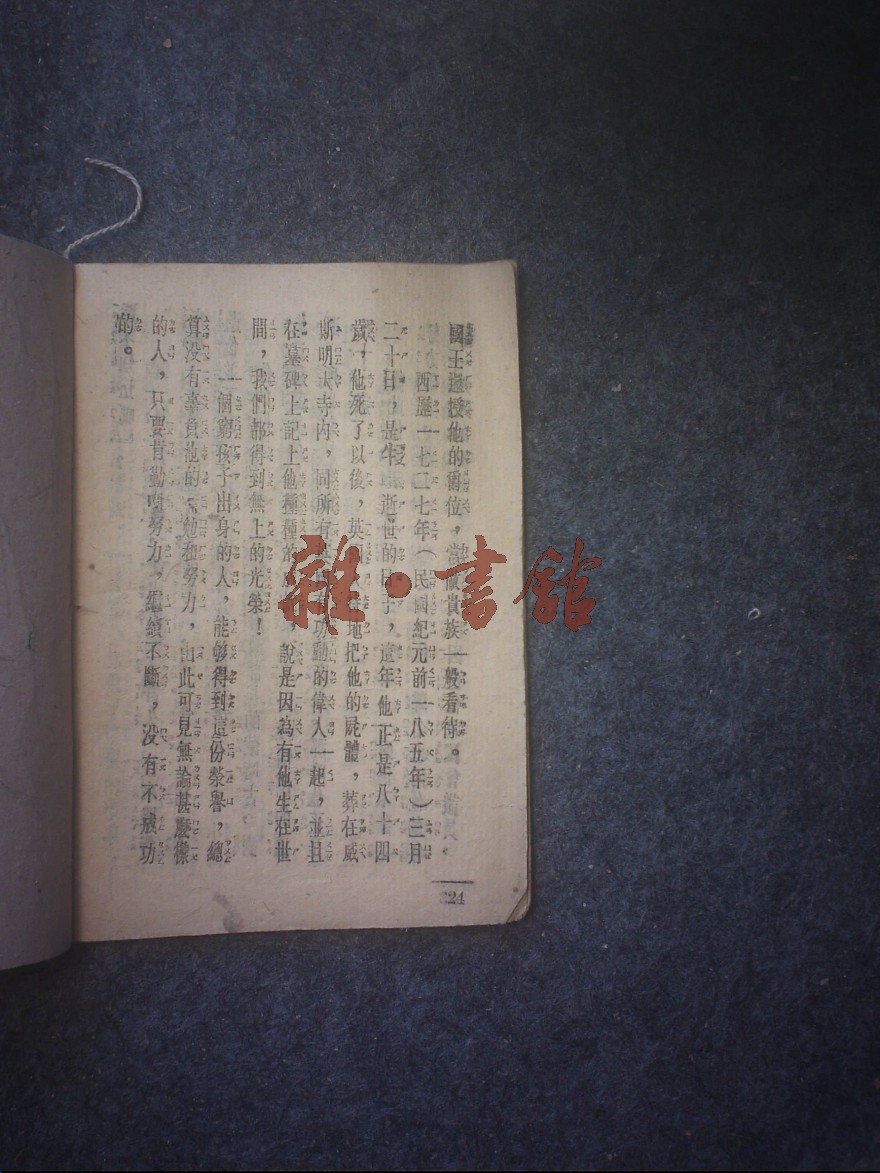 國王還授他的爵位，當做貴族一般看待。
西曆一七二七年（民國紀元前一八五年）三月
二十日，是牛 逝世的日子，這年他正是八十四
歲，他死了以後，英國 地把他的屍體，葬在威
斯明大寺内，同所有 功動的偉人一起，並且
在墓碑上記上他種種的 ，說是因為有他生在世
間，我們都得到無上的光榮！
一個窮孩子出身的人，能够得到這份榮譽，總
算没有辜負他的 勉和努力，由此可見無論甚麽樣
的人，只要肯勤 努力，繼續不斷，没有不成功
的。
24
雜·書館